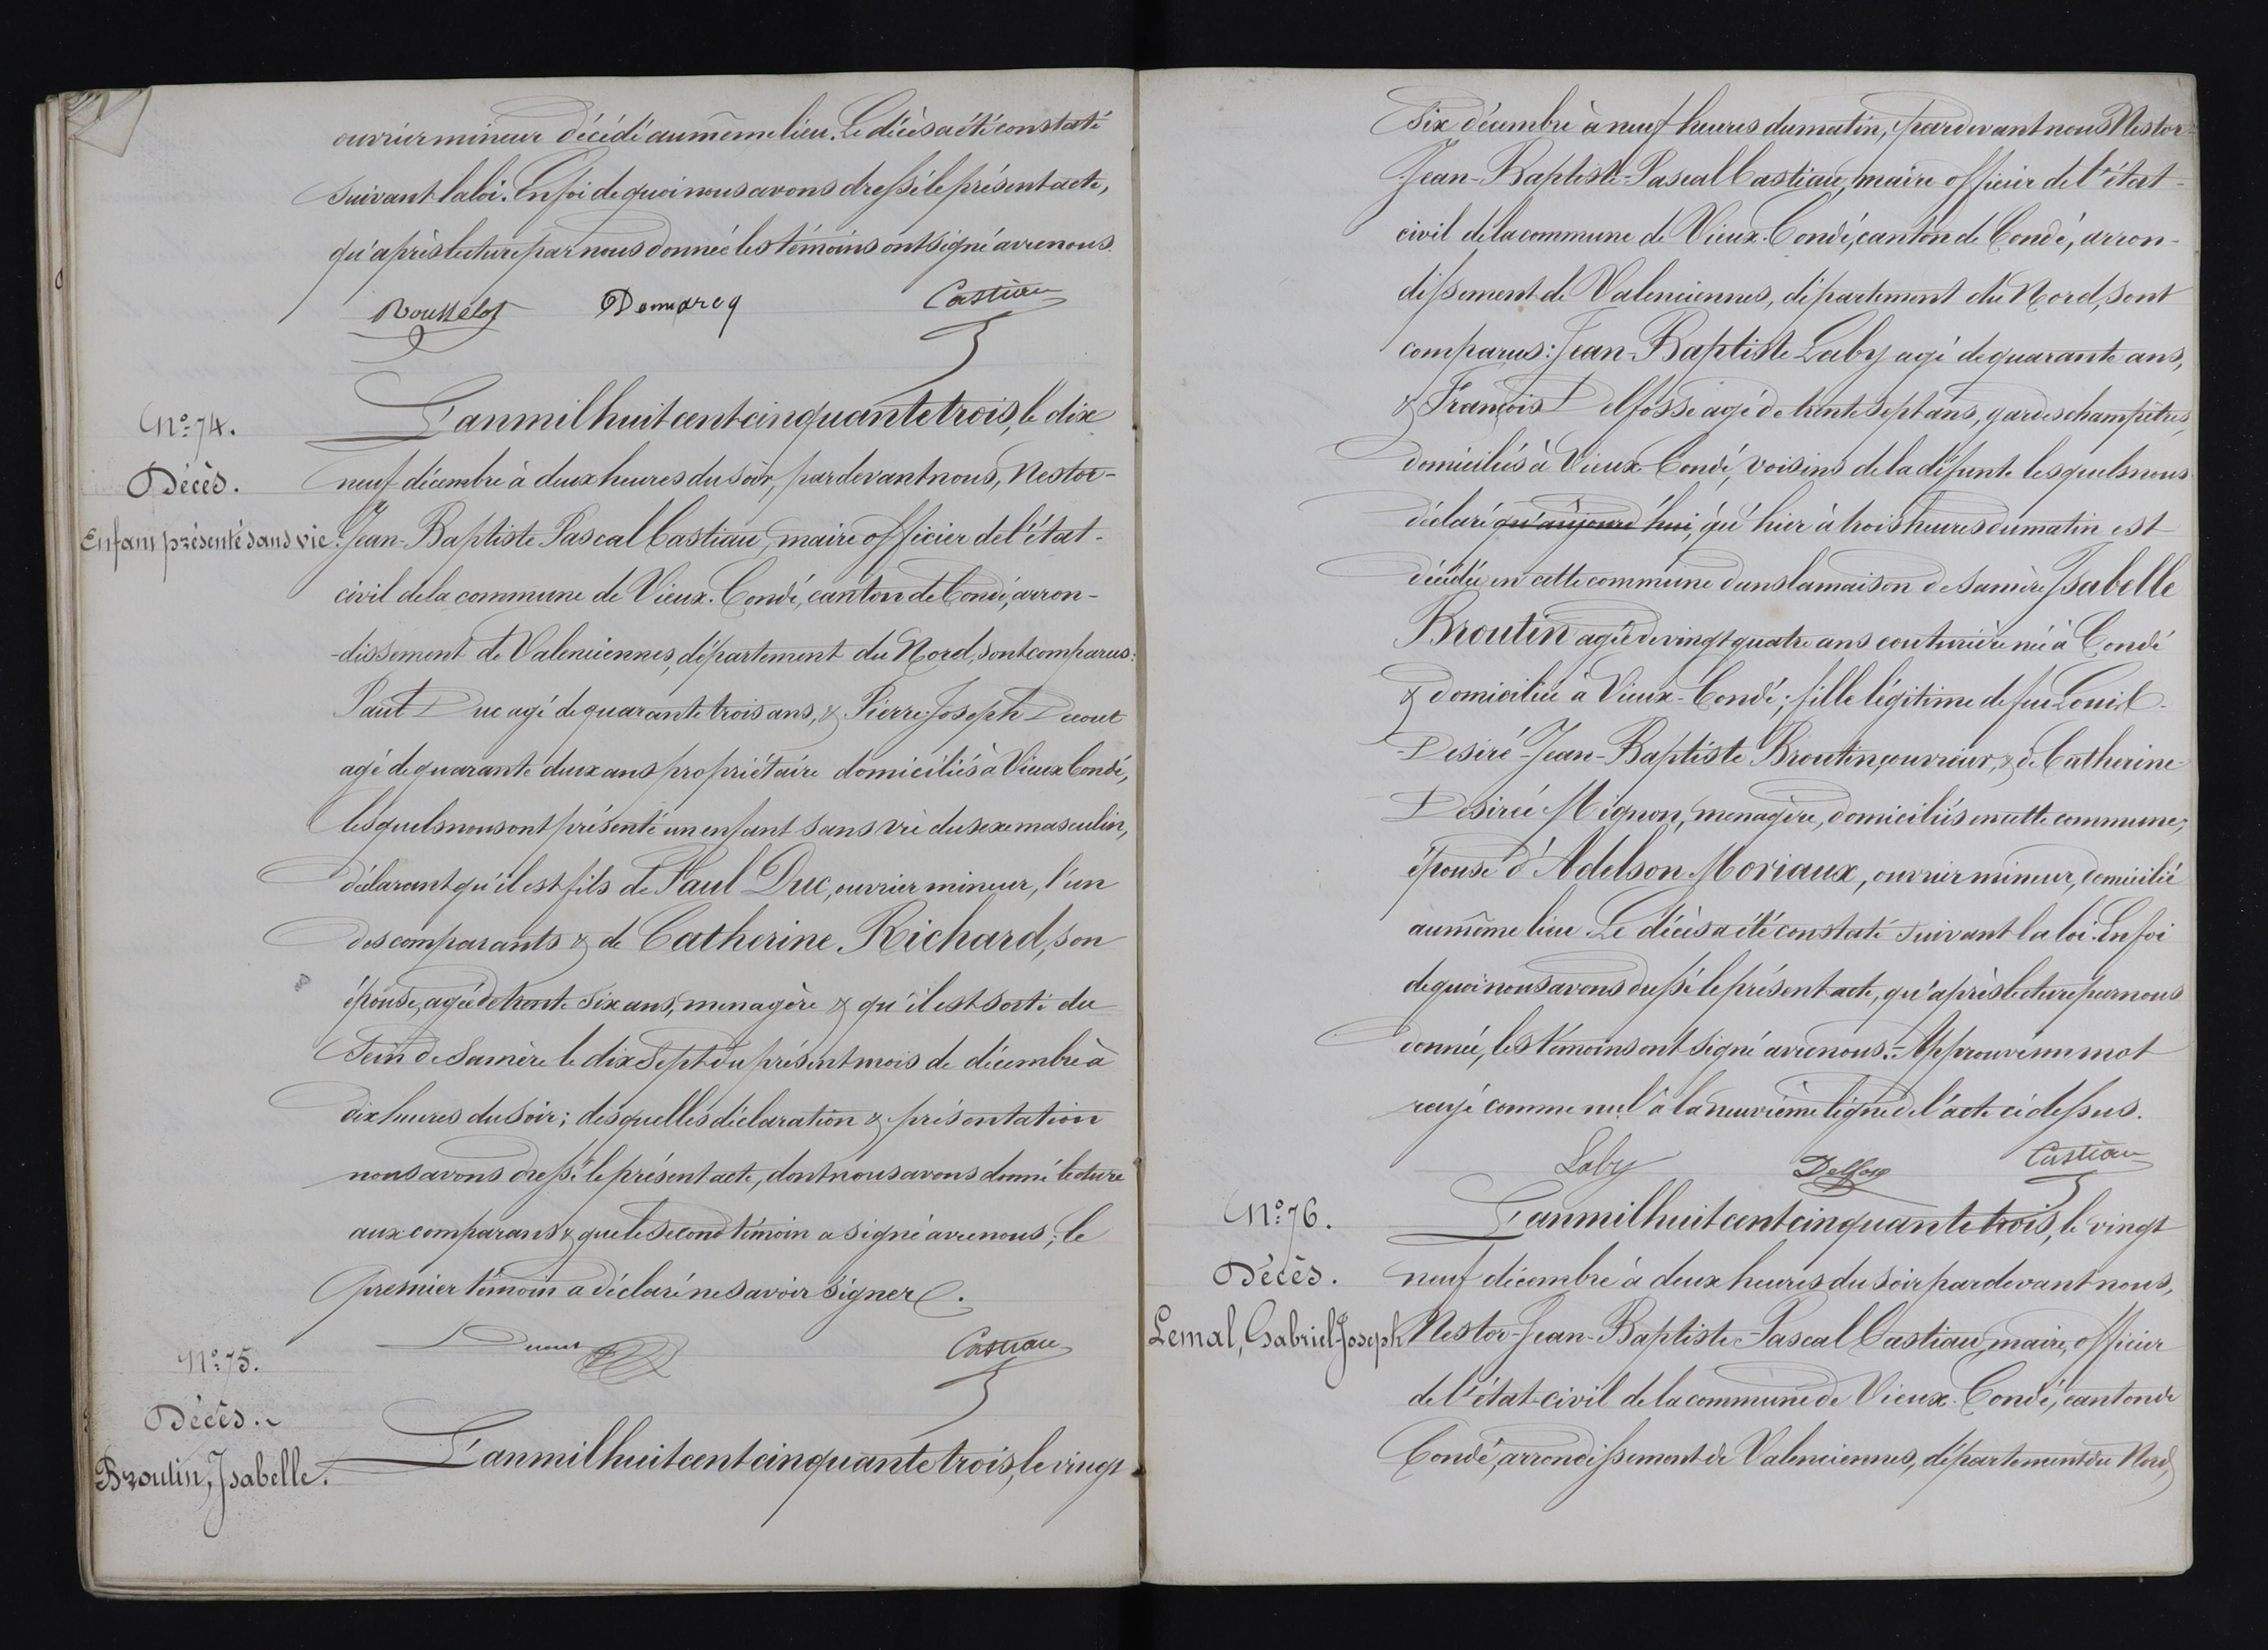 ouvrier mineur décédé au même lieu. Le décès a été constaté
suivant la loi. En foi de quoi nous avons dressé le présent acte,
qu'après lecture par nous donnée les témoins ont signé avec nous.
Rousselot Demarcq Castiau
N° 74.
Décès.
Enfant présenté sans vie.
L'an mil huit cent cinquante trois, le dix
neuf décembre à deux heures du soir, pardevant nous, Nestor-
Jean-Baptiste Pascal Castiau, maire officier de l'état-
civil de la commune de Vieux-Condé, canton de Condé, arron-
-dissement de Valenciennes, département du Nord, sont comparus:
Paul Duc agé de quarante trois ans, & Pierre Joseph
agé de quarante deux ans propriétaire domiciliés à Vieux Condé,
lesquels nous ont présenté un enfant sans vie du sexe masculin,
déclarant qu'il est fils de Paul Duc, ouvrier mineur, l'un
des comparants & de Catherine Richard, son
épouse, agée de trente six ans, menagère & qu'il est sorti du
sein de sa mère le dix sept du présent mois de décembre à
dix heures du soir; desquelles déclaration & présentation
nous avons dressé le présent acte, dont nous avons donné lecture
aux comparans & que le second témoin a signé avec nous; le
premier témoin a déclaré ne savoir signer.
Castiau
N° 75.
Décès.
Broutin, Isabelle.
L'an mil huit cent cinquante trois, le vingt
six décembre à neuf heures du matin, pardevant nous Nestor-
Jean-Baptiste-Pascal Castiau, maire officier de l'état-
civil de la commune de Vieux-Condé, canton de Condé, arron-
dissement de Valenciennes, département du Nord, sont
comparus: Jean-Baptiste Laby agé de quarante ans,
& François Delfosse agé de trente sept ans, gardes champêtres,
domiciliés à Vieux-Condé, voisins de la défunte lesquels nous
déclaré qu'aujourd'hui, qu'hier à trois heures du matin est
décédée en cette commune dans la maison de sa mère Isabelle
Broutin agée de vingt quatre ans couturière née à Condé
& domiciliée à Vieux-Condé; fille légitime de feu Louis
-Desiré-Jean-Baptiste Broutin, ouvrier, & de Catherine-
Desirée Mignon, menagère, domiciliés en cette commune;
épouse d'Adelson Moriaux, ouvrier mineur, domicilié
au même lieu. Le décès a été constaté suivant la loi. En foi
de quoi nous avons dressé le présent acte, qu'après lecture par nous
donnée, les témoins ont signé avec nous. - Approuvé un mot
rayé comme nul à la neuvième ligne de l'acte ci dessus.
Laby Delfosse Castiau
N° 76.
Décès.
Lemal, Gabriel-Joseph
L'an mil huit cent cinquante trois, le vingt
neuf décembre à deux heures du soir pardevant nous,
Nestor-Jean-Baptiste-Pascal Castiau, maire, officier
de l'état-civil de la commune de Vieux-Condé, canton de
Condé, arrondissement de Valenciennes, département du Nord,